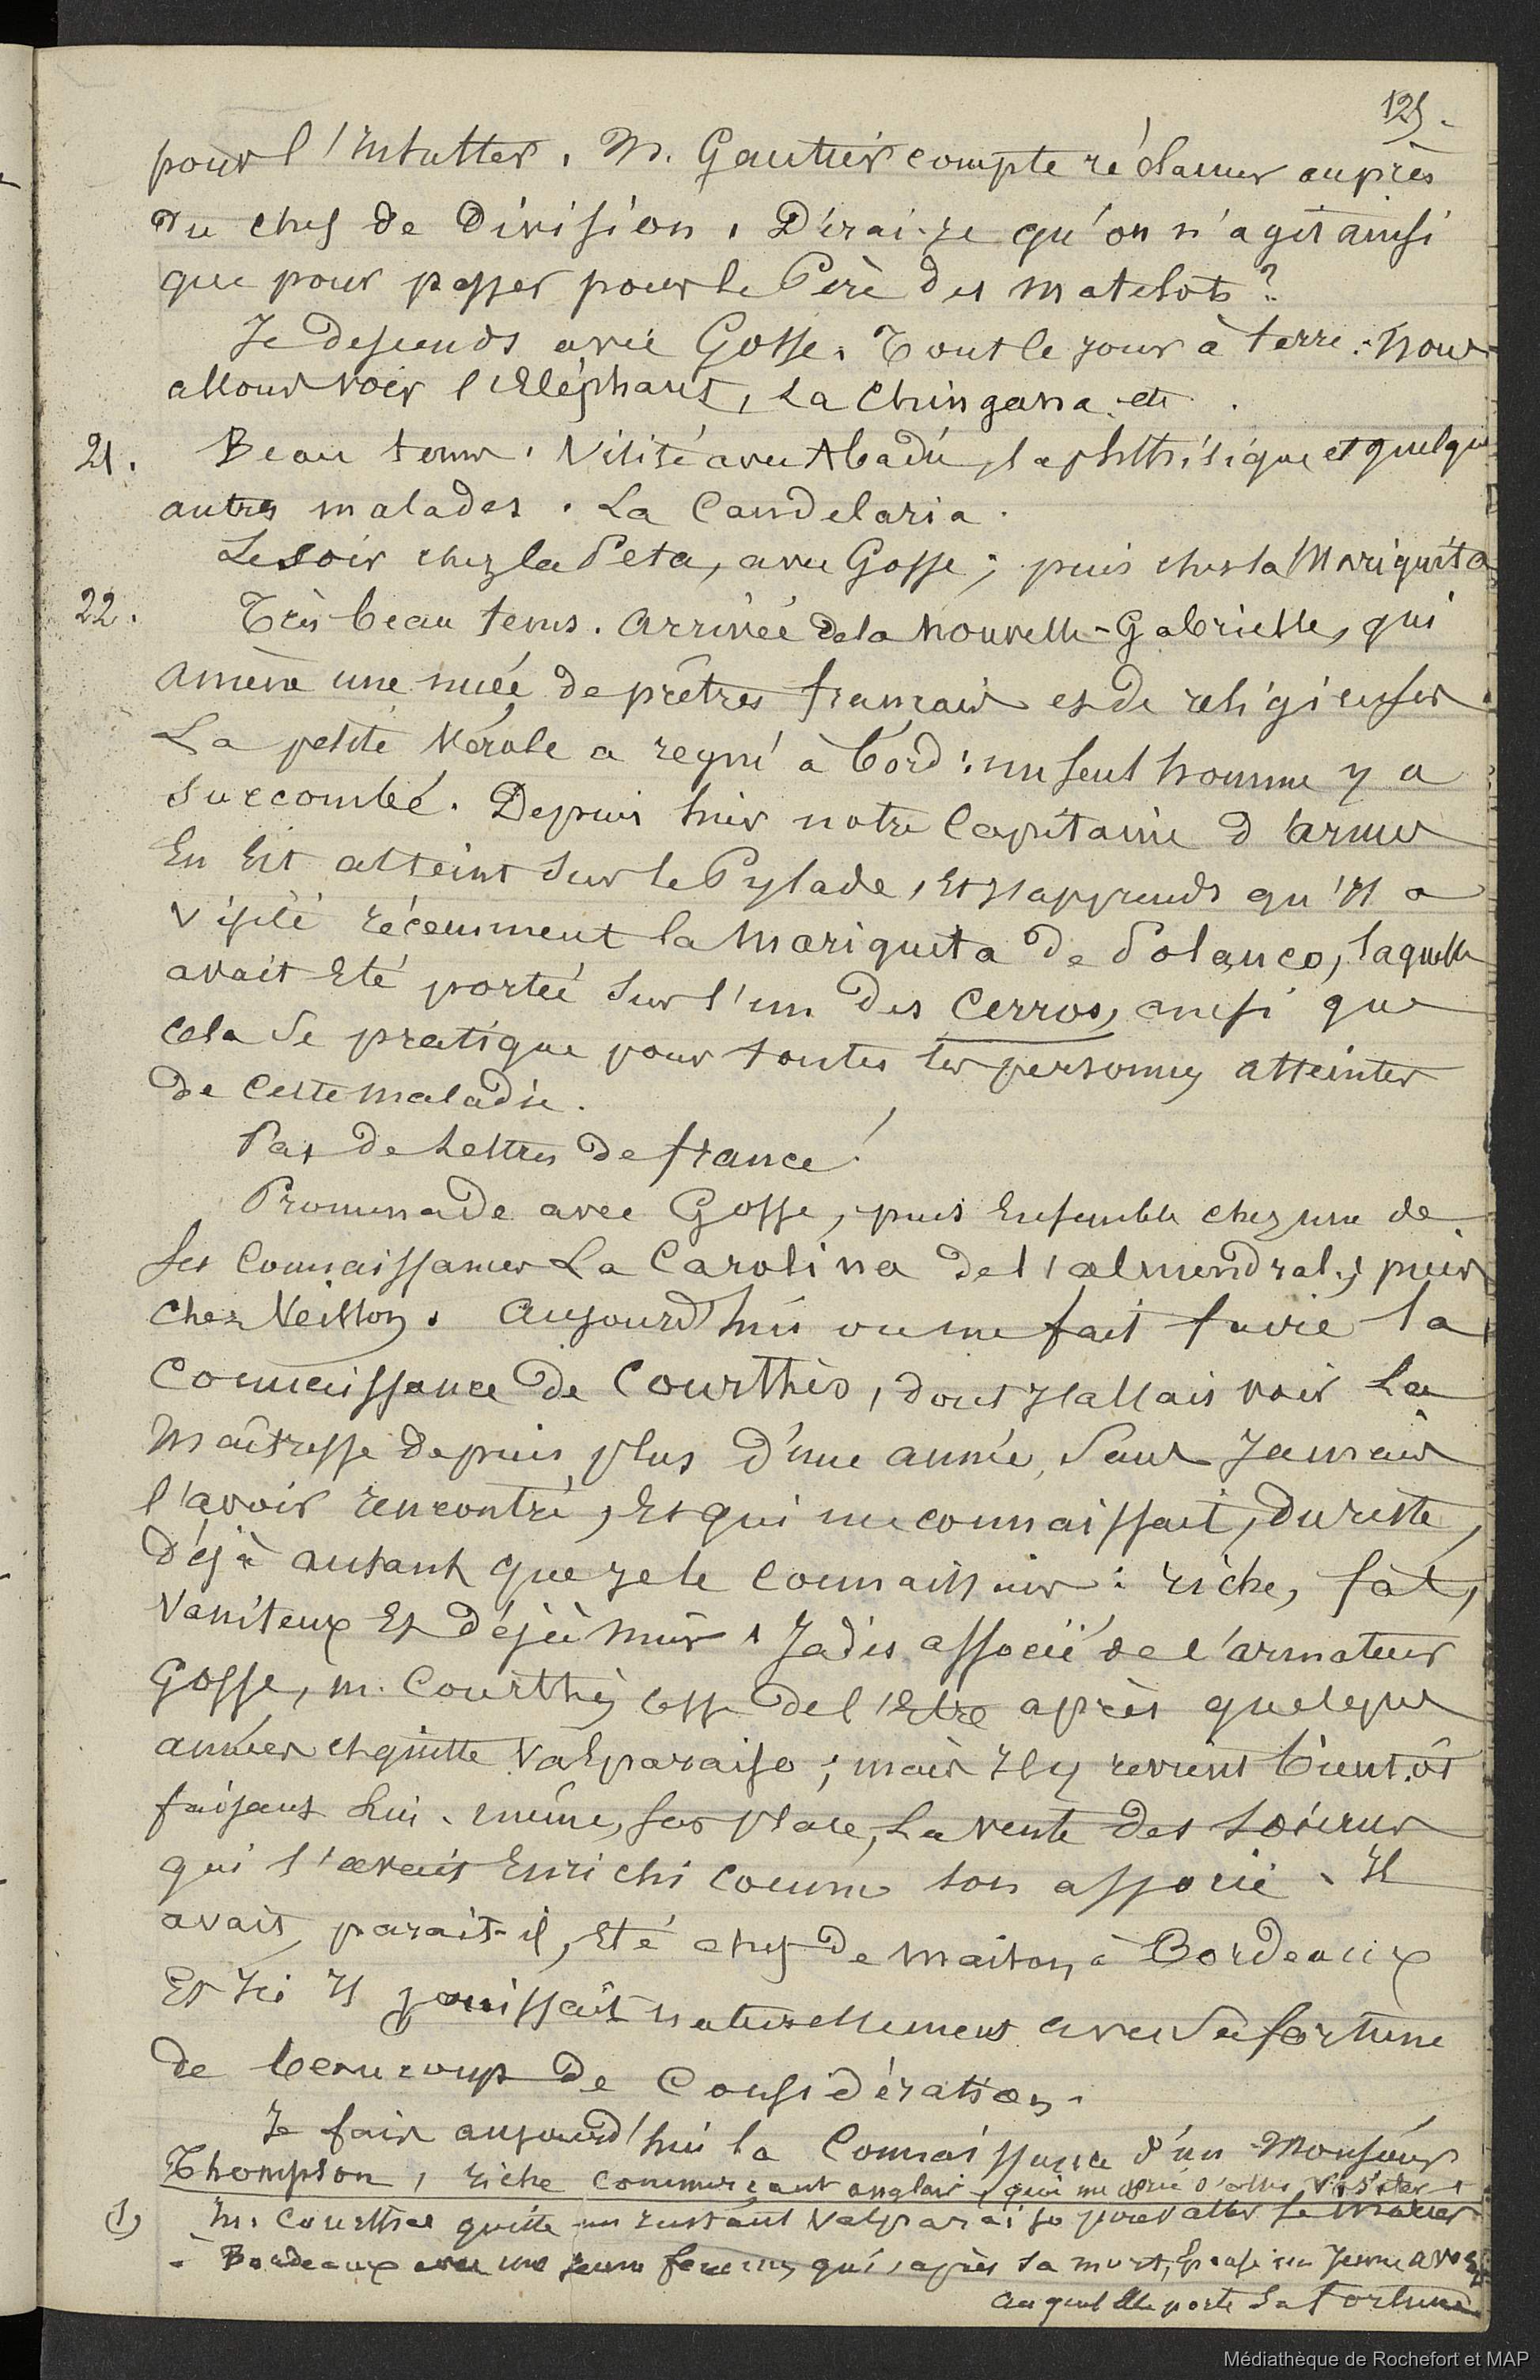 125.
pour l'insulter. M. Gautier compte réclamer auprès
du chef de Division. Dirai-je qu'on n'agit ainsi
que pour passer pour le Père des matelots?
Je descends avec Gosse. Tout le jour à terre. Nous
allons voir l'Eléphant, La Chingana etc.
21. Beau tems. Visité avec Abadie, la phthisique et quelques
autres malades. La Candelaria.
Le soir chez la Peta, avec Gosse; puis chez la Mariquita
22. Très beau tems. Arrivée de la Nouvelle-Gabrielle, qui
amène une nuée de prêtres français et de religieuses
La petite Vérole a regné à bord: un seul homme y a
succombé. Depuis hier notre Capitaine d'armes
En Est atteint sur le Pylade, Et j'apprends qu'il a
visité récemment la Mariquita de Polanco, laquelle
avait Eté portée sur l'un des Cerros, ainsi que
cela se pratique pour toutes les personnes atteintes
de cette maladie.
Pas de Lettres de france!
Promenade avec Gosse, puis Ensemble chez une de
ses Connaissances La Carolina de l'almendral; puis
chez Neilson. Aujourd'hui on me fait faire la
Connaissance de Courthès, dont j'allais voir La
Maîtresse depuis plus d'une année, Sans Jamais
l'avoir rencontré, Et qui me connaissait, du reste,
Déjà autant que je le connaissais: riche, fat,
Vaniteux Et déjà mûr. Jadis associé de l'armateur
Gosse, M. Courthès cesse de l'Etre après quelques
années et quitte Valparaiso; mais Il y revient bientôt
faisant Lui-même, sur place, La vente des soieries
qui l'avait Enrichi comme son associé. Il
avait, parait-il, Eté chef de maison à Bordeaux
Et Ici Il jouissait naturellement avec Sa fortune
de beaucoup de Considération.
Je fais aujourd'hui la Connaissance d'un Monsieur
Thompson, riche commerçant anglais, qui me prie d'aller visiter
(1) M. Courthès quitte un instant Valparaiso pour aller se marier
à Bordeaux avec une jeune femme, qui, après sa mort, Epouse un Jeune
auquel Elle porte sa fortune
Médiathèque de Rochefort et MAP